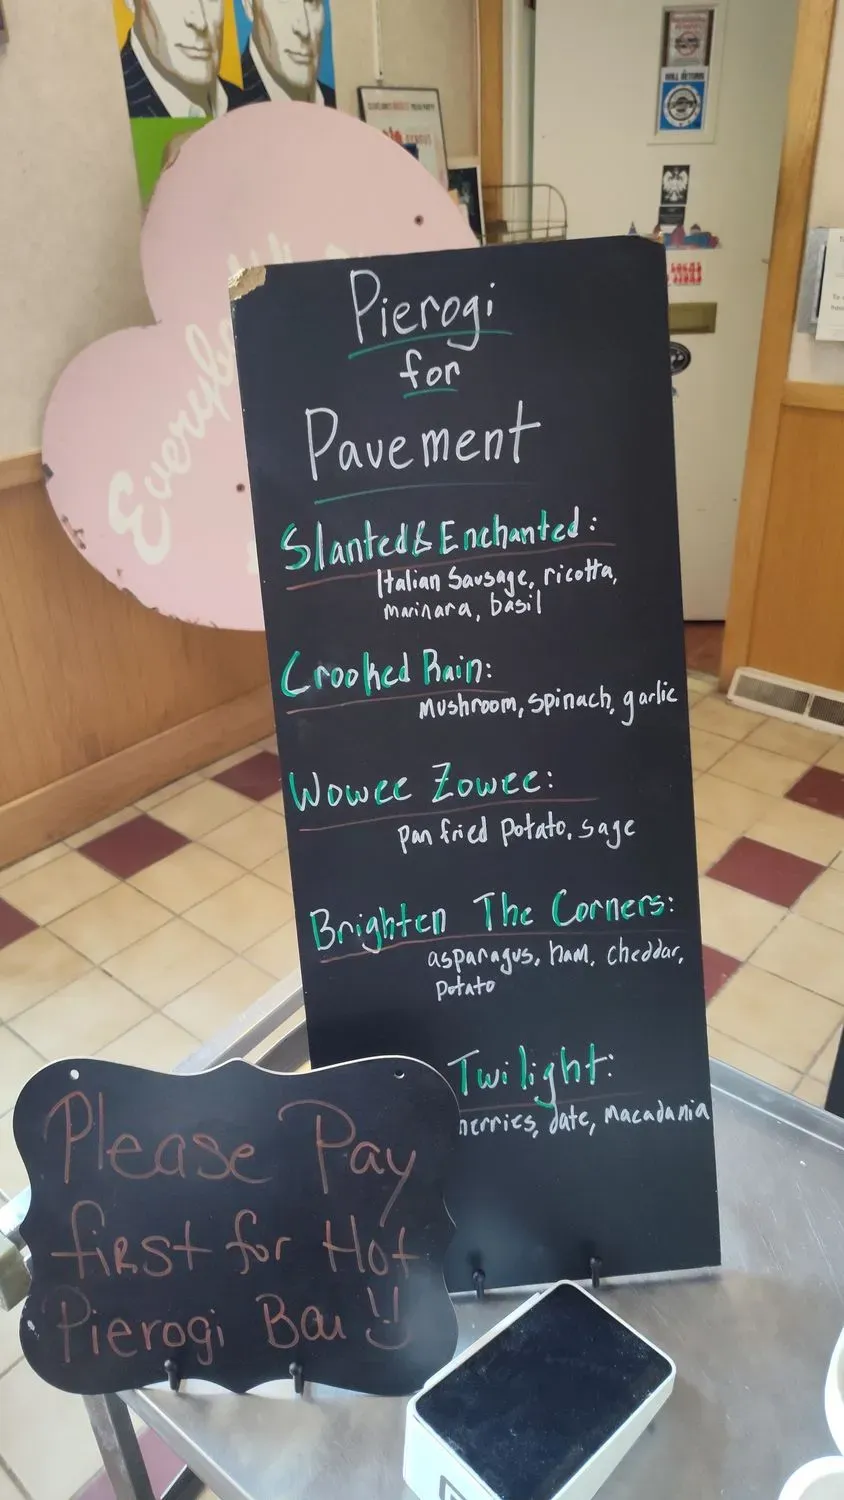 Everybody
Pierogi
for
Pavement
Slanted & Enchanted:
Italian Sausage, ricotta,
marinara, basil
Crooked Rain:
Mushroom, spinach, garlic
Wowee Zowee:
pan fried potato, sage
Brighten The Corners:
asparagus, ham, cheddar,
potato
Twilight:
date, macadamia
Please Pay
first for Hot
Pierogi Bar !!